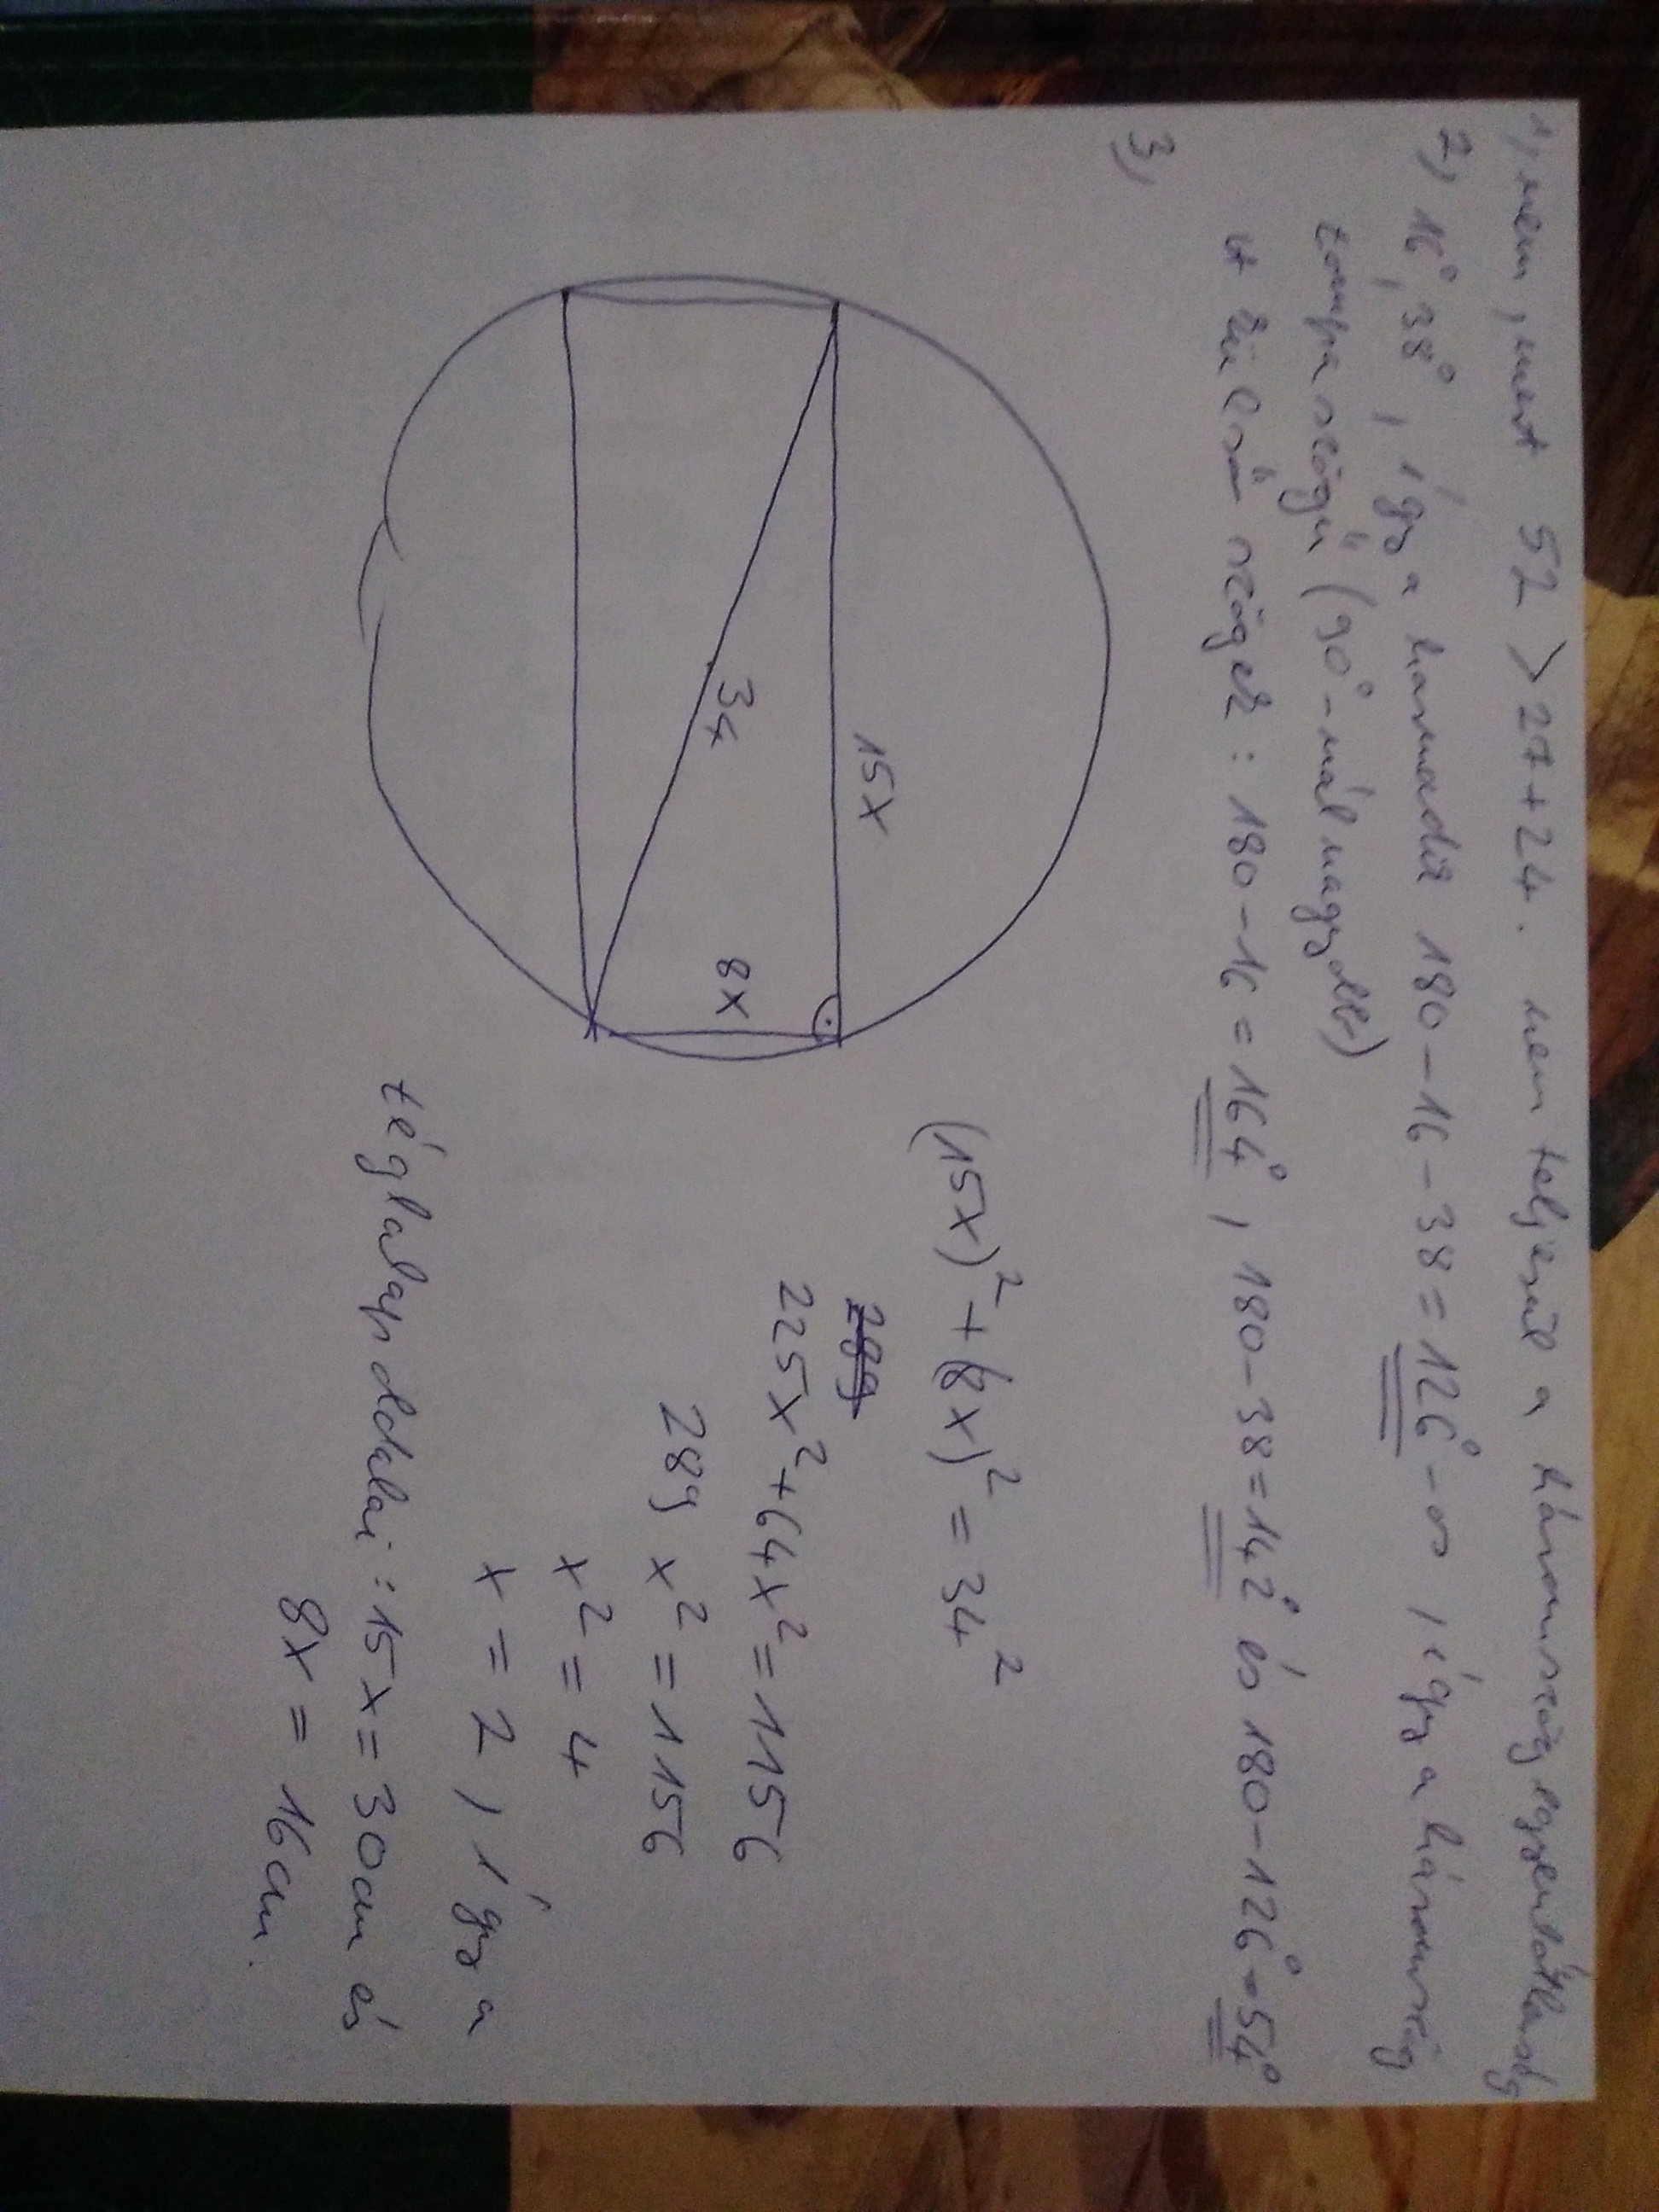 1, nem, mert 52 > 27+24. nem teljesül a háromszög egyenlőtlenség
2, 16°, 38°, így a harmadik 180-16-38=126°-os, így a háromszög
tompaszögű (90°-nál nagyobb)
A külső szögek: 180-16=164°, 180-38=142° és 180-126°=54°
3,
15x
34
8x
(15x)²+(8x)²=34²
289
225x²+64x²=1156
289x²=1156
x²=4
x=2, így a
téglalap oldalai: 15x=30cm és
8x=16cm.